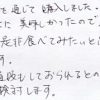 を通じて購入しました。
に美味しかったので、
是非食べてみたいと
す。
直販もしておられるとの
検討します。